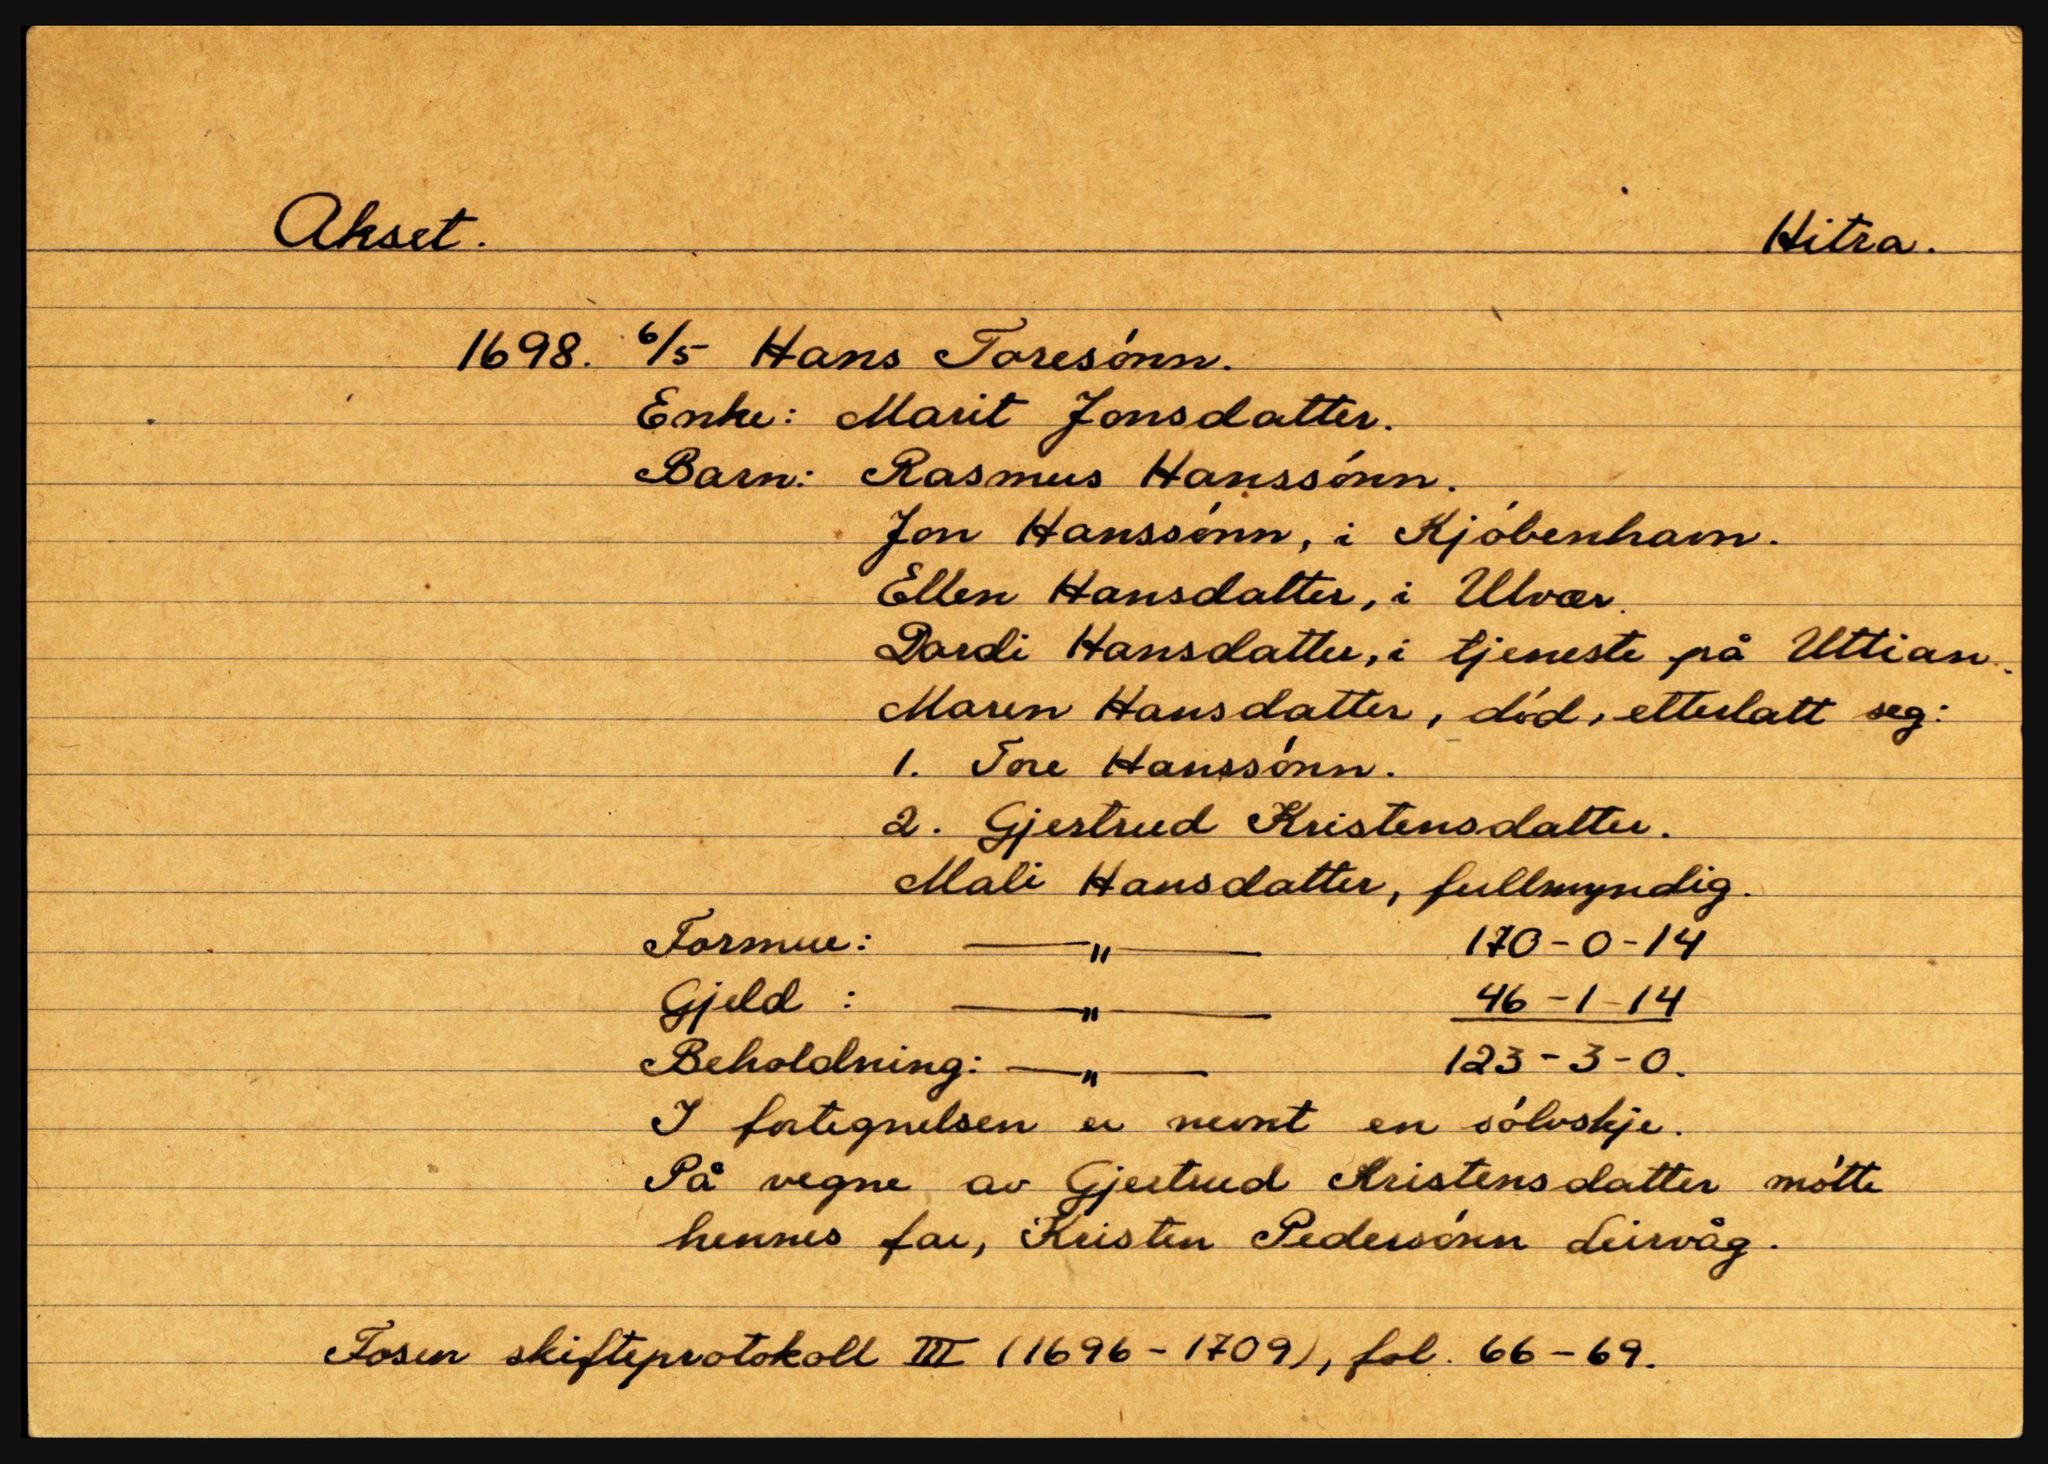 Akset. Hitra.
1698. 6/5 Hans Toresønn.
Enke: Marit Jonsdatter.
Barn: Rasmus Hanssønn.
Jon Hanssønn, i Kjøbenhavn.
Ellen Hansdatter, i Ulvær.
Dordi Hansdatter, i tjeneste på Uttian.
Maren Hansdatter, død, etterlatt seg:
1. Tore Hanssønn.
2. Gjertrud Kristensdatter.
Mali Hansdatter, fullmyndig.
Formue: —„— 170-0-14
Gjeld : —„— 46-1-14
Beholdning: —„— 123-3-0.
I fortegnelsen er nevnt en sølvskje.
På vegne av Gjertrud Kristensdatter møtte
hennes far, Kristen Pedersønn Leirvåg.
Fosen skifteprotokoll III (1696-1709), fol. 66-69.